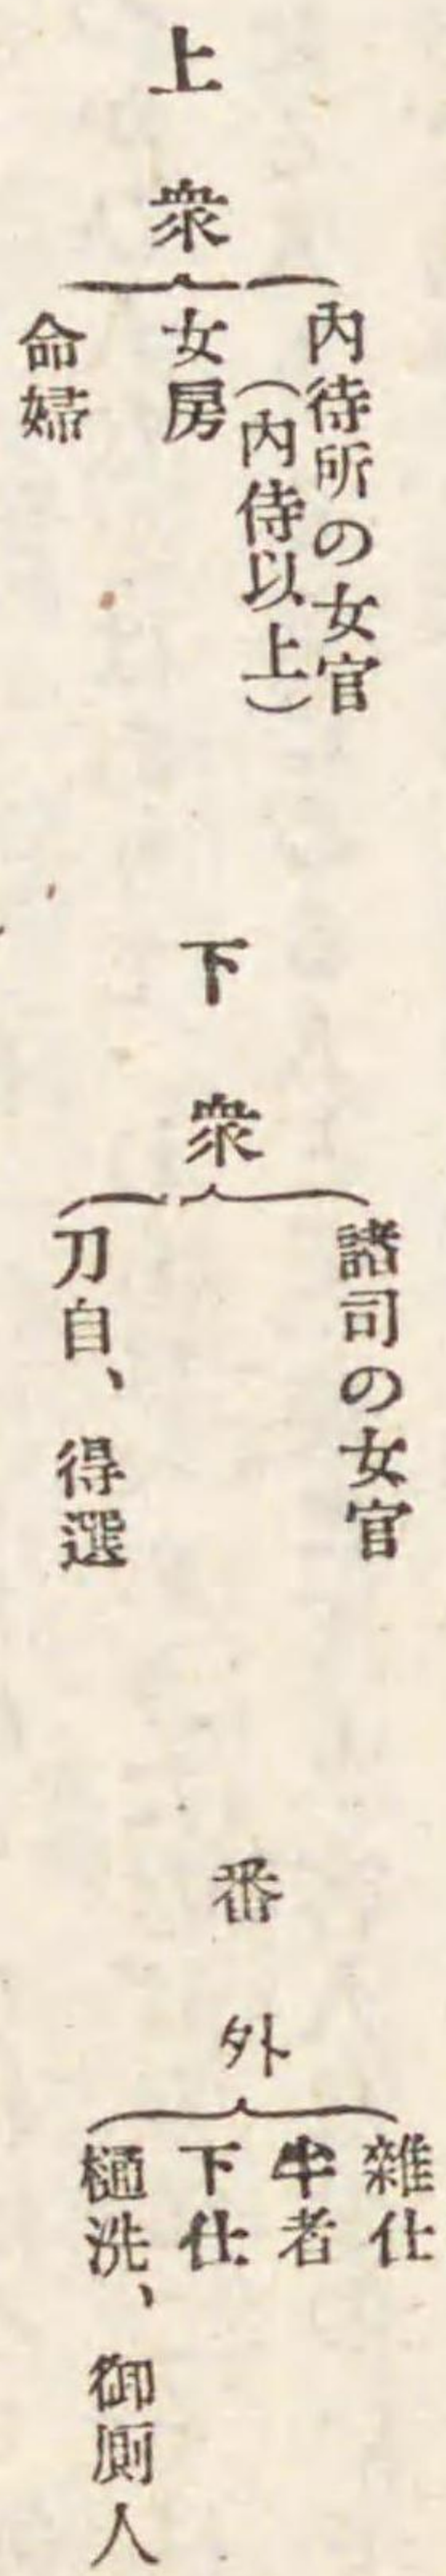 上衆
内待所の女官
(内侍以上)
女房
命婦
下衆
諸司の女官
刀自、得選
番外
雑仕
半者
下仕
樋洗、御厠人